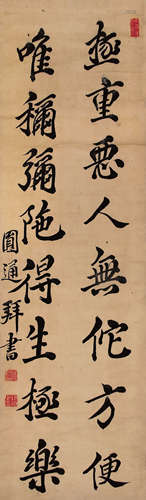 極重惡人無佗方便
唯穪彌陁得生極樂
圓通拜書